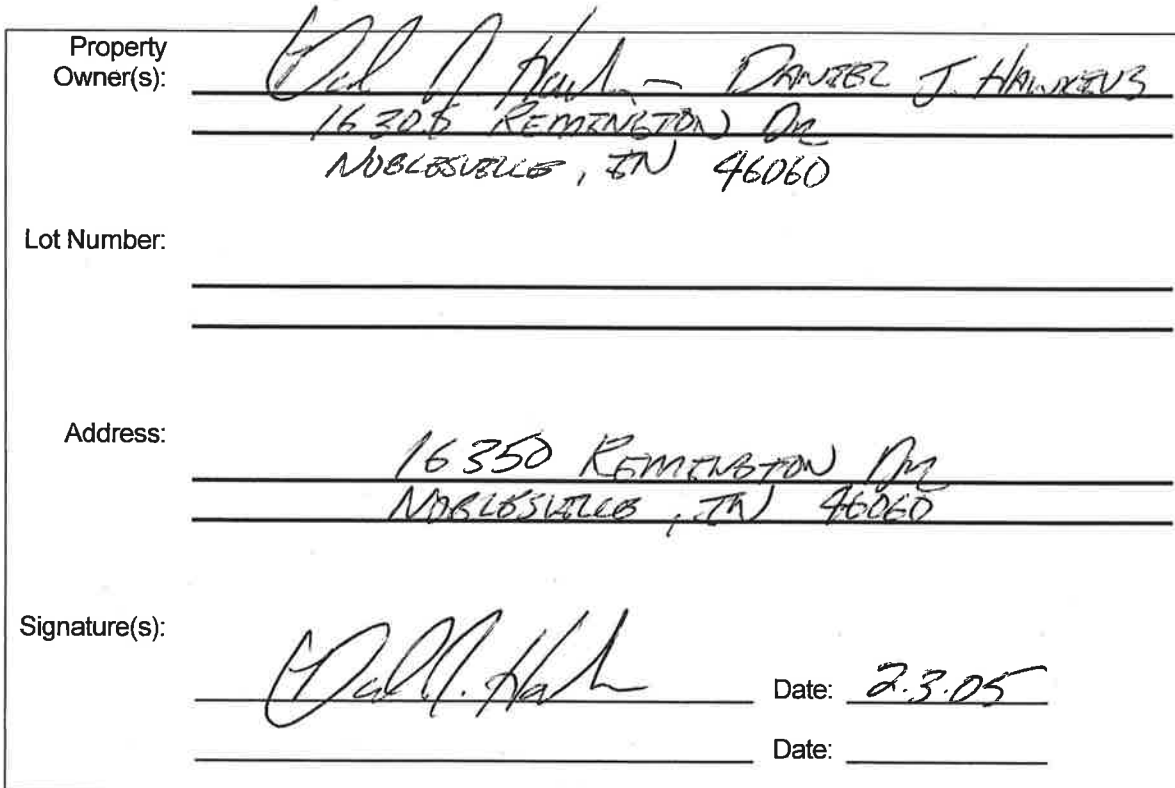 Property
Owner(s): DANIEL J. HAWKINS
REMINGTON DR
NOBLESVILLE, IN 46060
Lot Number:
Address: 16350 REMINGTON DR
NOBLESVILLE, IN 46060
Signature(s):
Date: 2.3.05
Date: